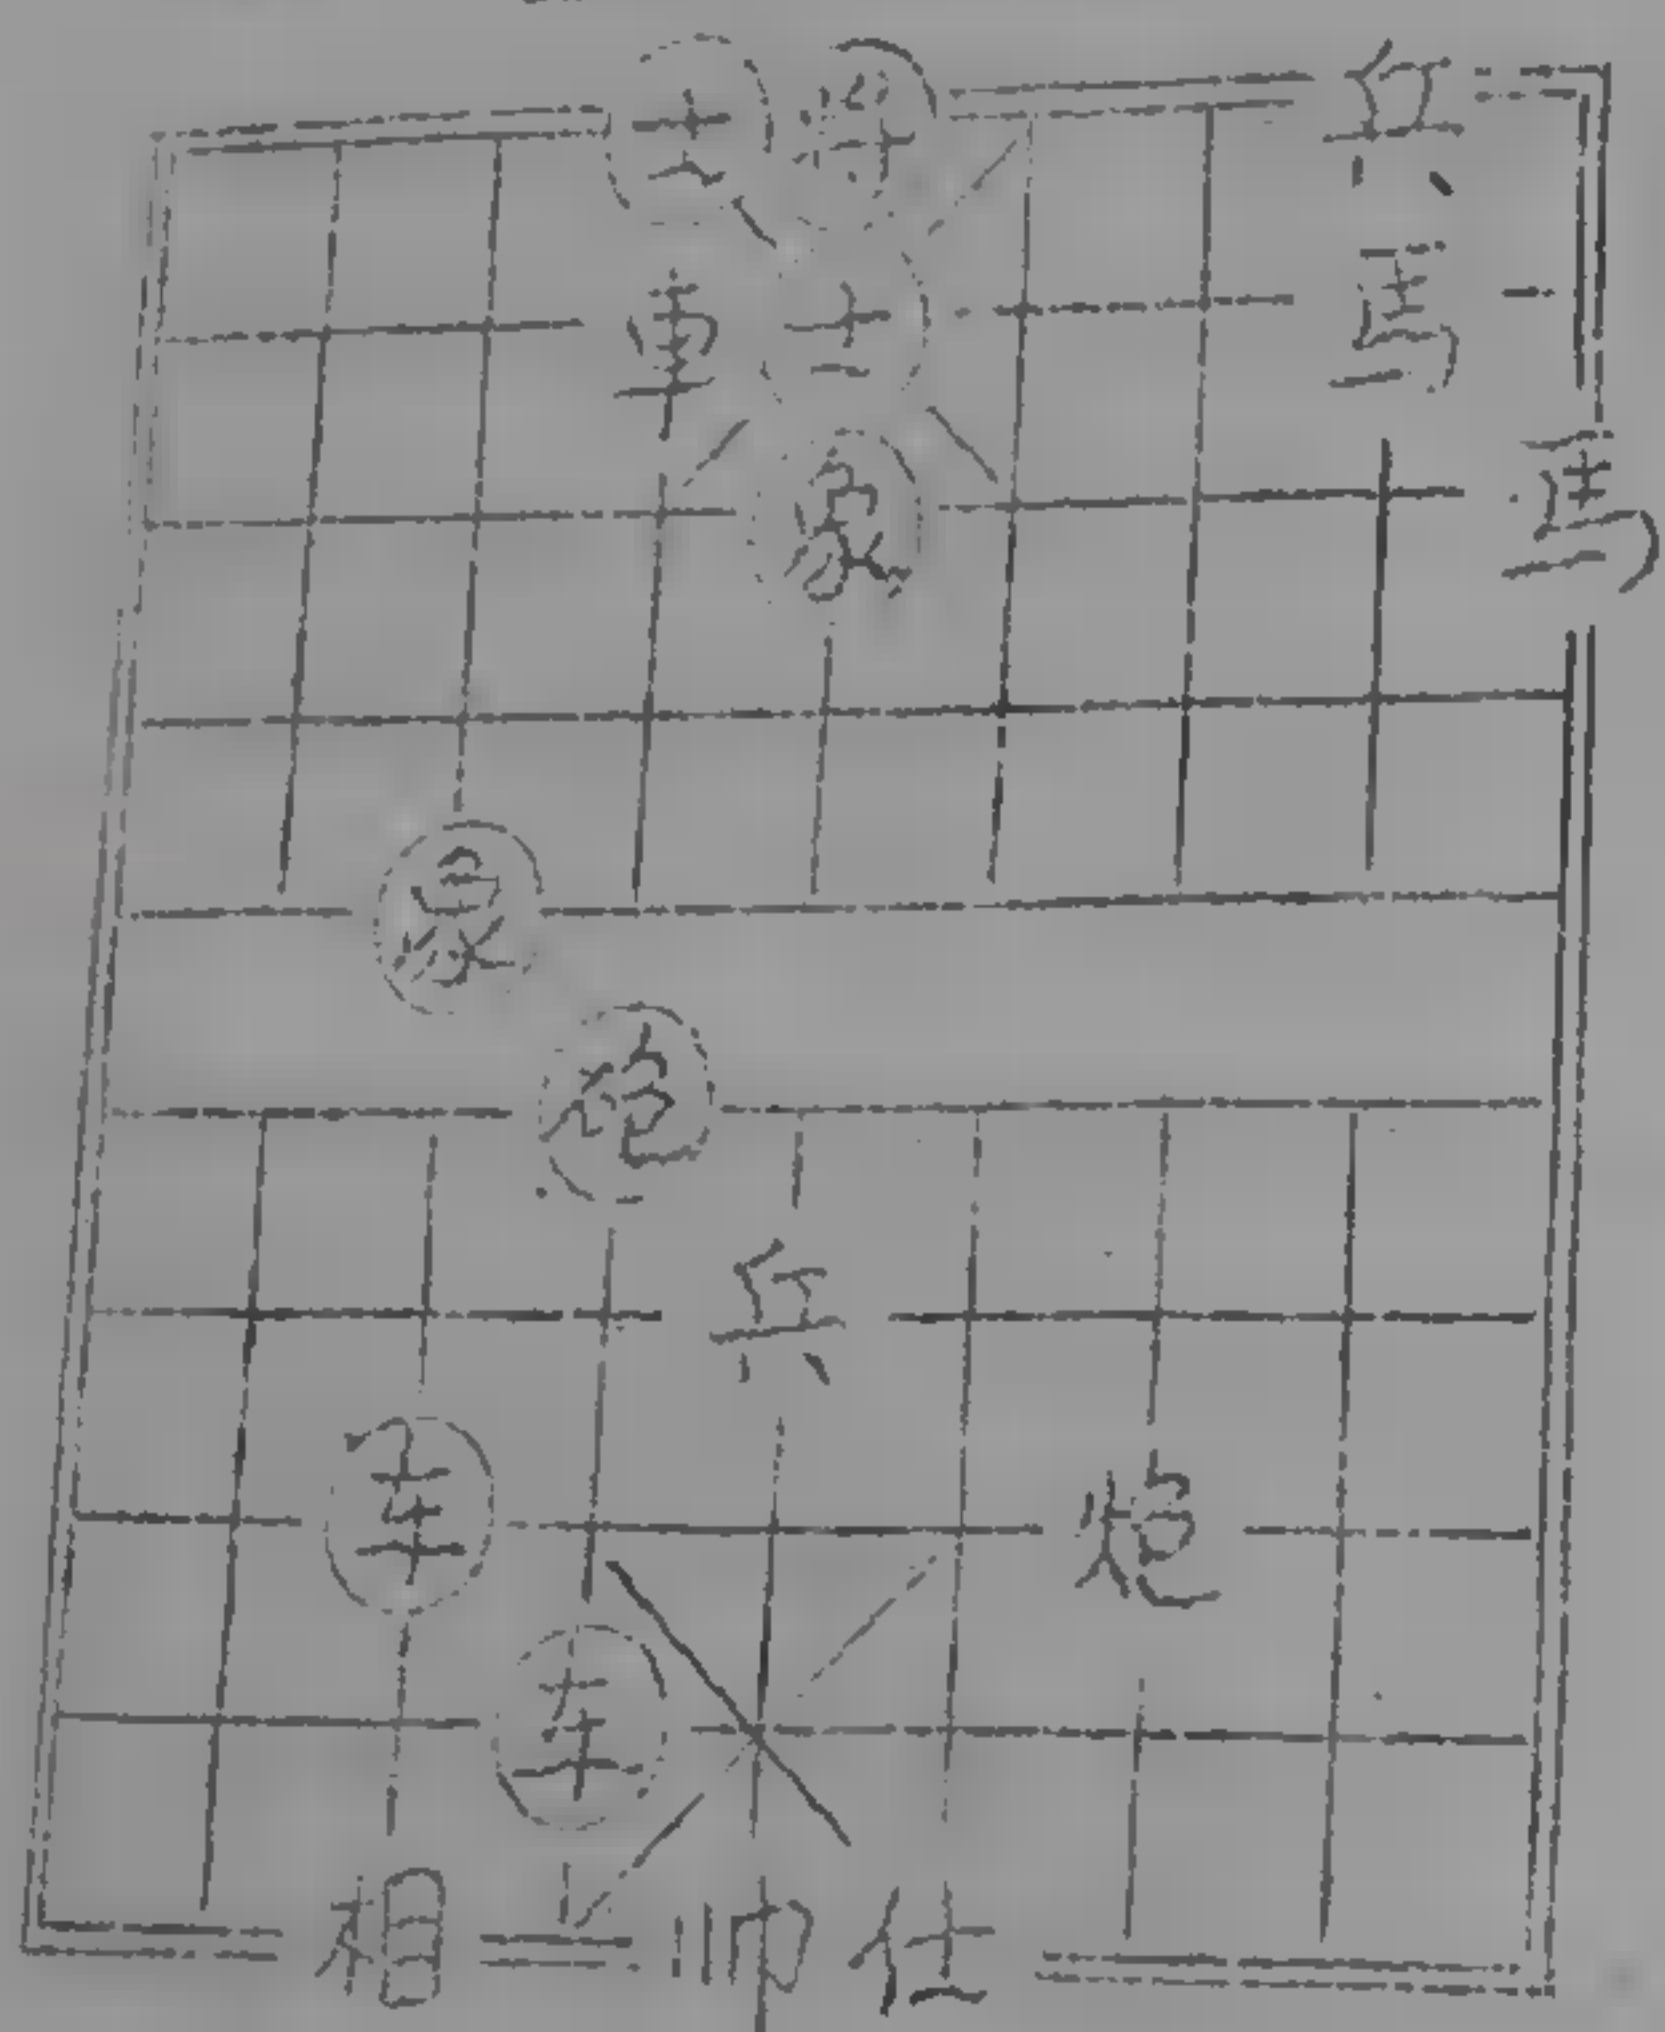 士 将 兵
車 士 馬
象 馬
象
砲
兵
车 炮
车
相 帅 仕